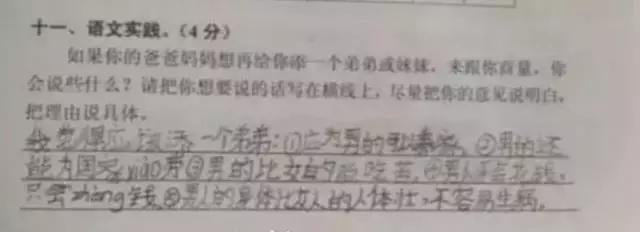 十一、语文实践。(4分)
如果你的爸爸妈妈想再给你添一个弟弟或妹妹,来跟你商量,你
会说些什么?请把你想要说的话写在横线上,尽量把你的意见说明白,
把理由说具体。
我觉得应该添一个弟弟:①应为男的 ②男的还
能为国家xiào劳③男的比女的能吃苦,④男人不会花钱,
只会zhèng钱,⑤男人的身体比女人的人体壮,不容易生病。